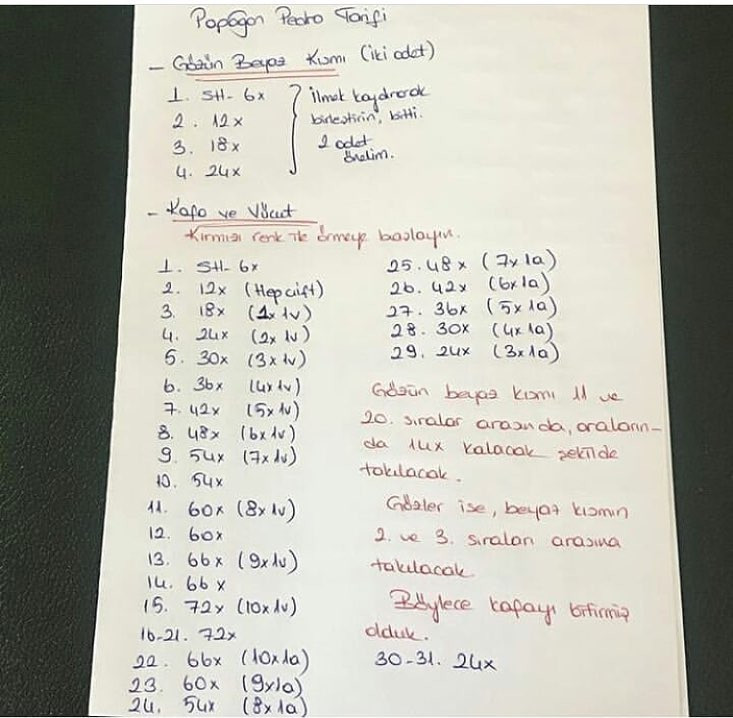 Papağan Pedro Tarifi
- Gözün Beyaz Kısmı (iki adet)
1. SH- 6x
2. 12x
3. 18x
4. 24x
ilmek kaydırarak
birleştirin, bitti.
2 adet
örelim.
- Kafa ve Vücut
Kırmızı renk ile örmeye başlayın.
1. SH- 6x
2. 12x (Hep çift)
3. 18x (1x 1v)
4. 24x (2x 1v)
5. 30x (3x 1v)
6. 36x (4x 1v)
7. 42x (5x 1v)
8. 48x (6x 1v)
9. 54x (7x 1v)
10. 54x
11. 60x (8x 1v)
12. 60x
13. 66x (9x 1v)
14. 66x
15. 72x (10x 1v)
16-21. 72x
22. 66x (10x 1a)
23. 60x (9x 1a)
24. 54x (8x 1a)
25. 48x (7x 1a)
26. 42x (6x 1a)
27. 36x (5x 1a)
28. 30x (4x 1a)
29. 24x (3x 1a)
Gözün beyaz kısmı 11 ve
20. sıralar arasında, araların-
da 14x kalacak şekilde
takılacak.
Gözler ise, beyaz kısmın
2. ve 3. sıraları arasına
takılacak.
Böylece kafayı bitirmiş
olduk.
30-31. 24x